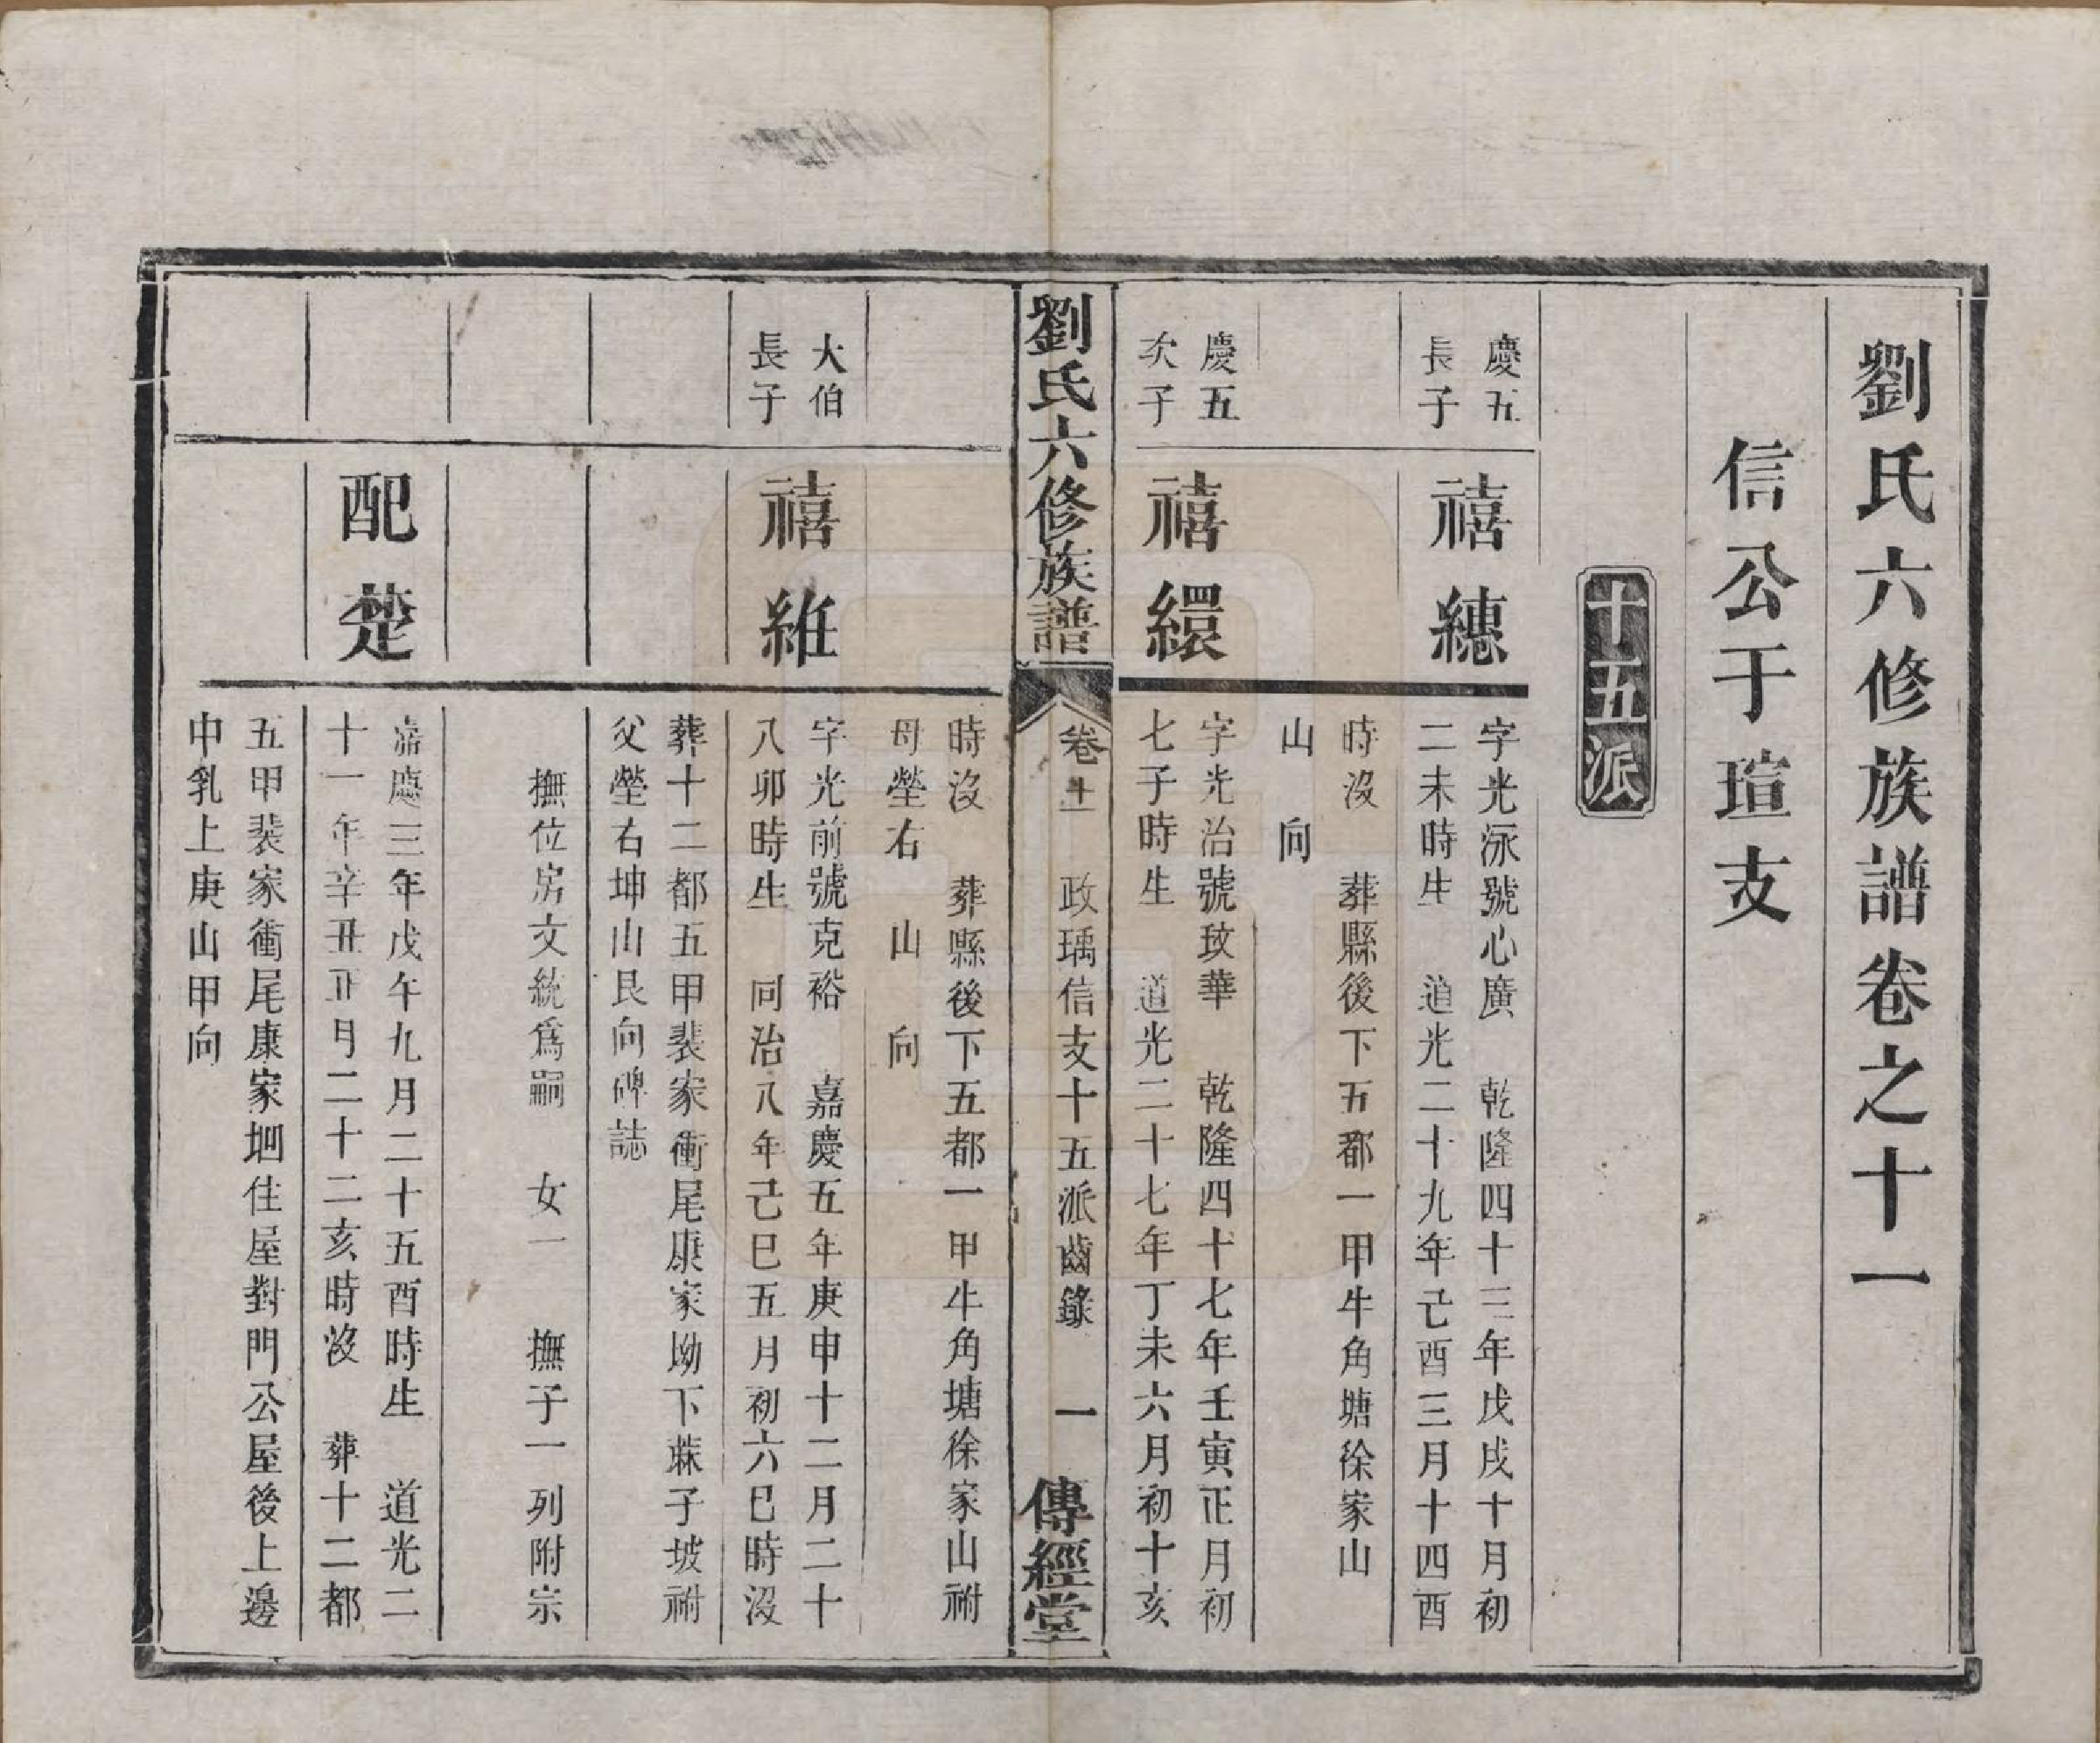 劉氏六修族譜卷之十一
信公于瑄支
十五派
慶五
長子
禧繐
字光泳號心廣　乾隆四十三年戊戌十月初
二未時生　道光二十九年己酉三月十四酉
時沒　葬縣後下五都一甲牛角塘徐家山
山　向
慶五
次子
禧繯
字光治號玫華　乾隆四十七年壬寅正月初
七子時生　道光二十七年丁未六月初十亥
劉氏六修族譜
卷十一　政瑀信支十五派齒錄　一
傳經堂
時沒　葬縣後下五都一甲牛角塘徐家山祔
母塋右　山　向
大伯
長子
禧維
字光前號克裕　嘉慶五年庚申十二月二十
八卯時生　同治八年己巳五月初六巳時沒
葬十二都五甲裴家衝尾康家坳下蔴子坡祔
父塋右坤山艮向碑誌
撫位房文統為嗣　女一　撫子一列附宗
配楚
嘉慶三年戊午九月二十五酉時生　道光二
十一年辛丑正月二十二亥時沒　葬十二都
五甲裴家衝尾康家坳住屋對門公屋後上邊
中乳上庚山甲向